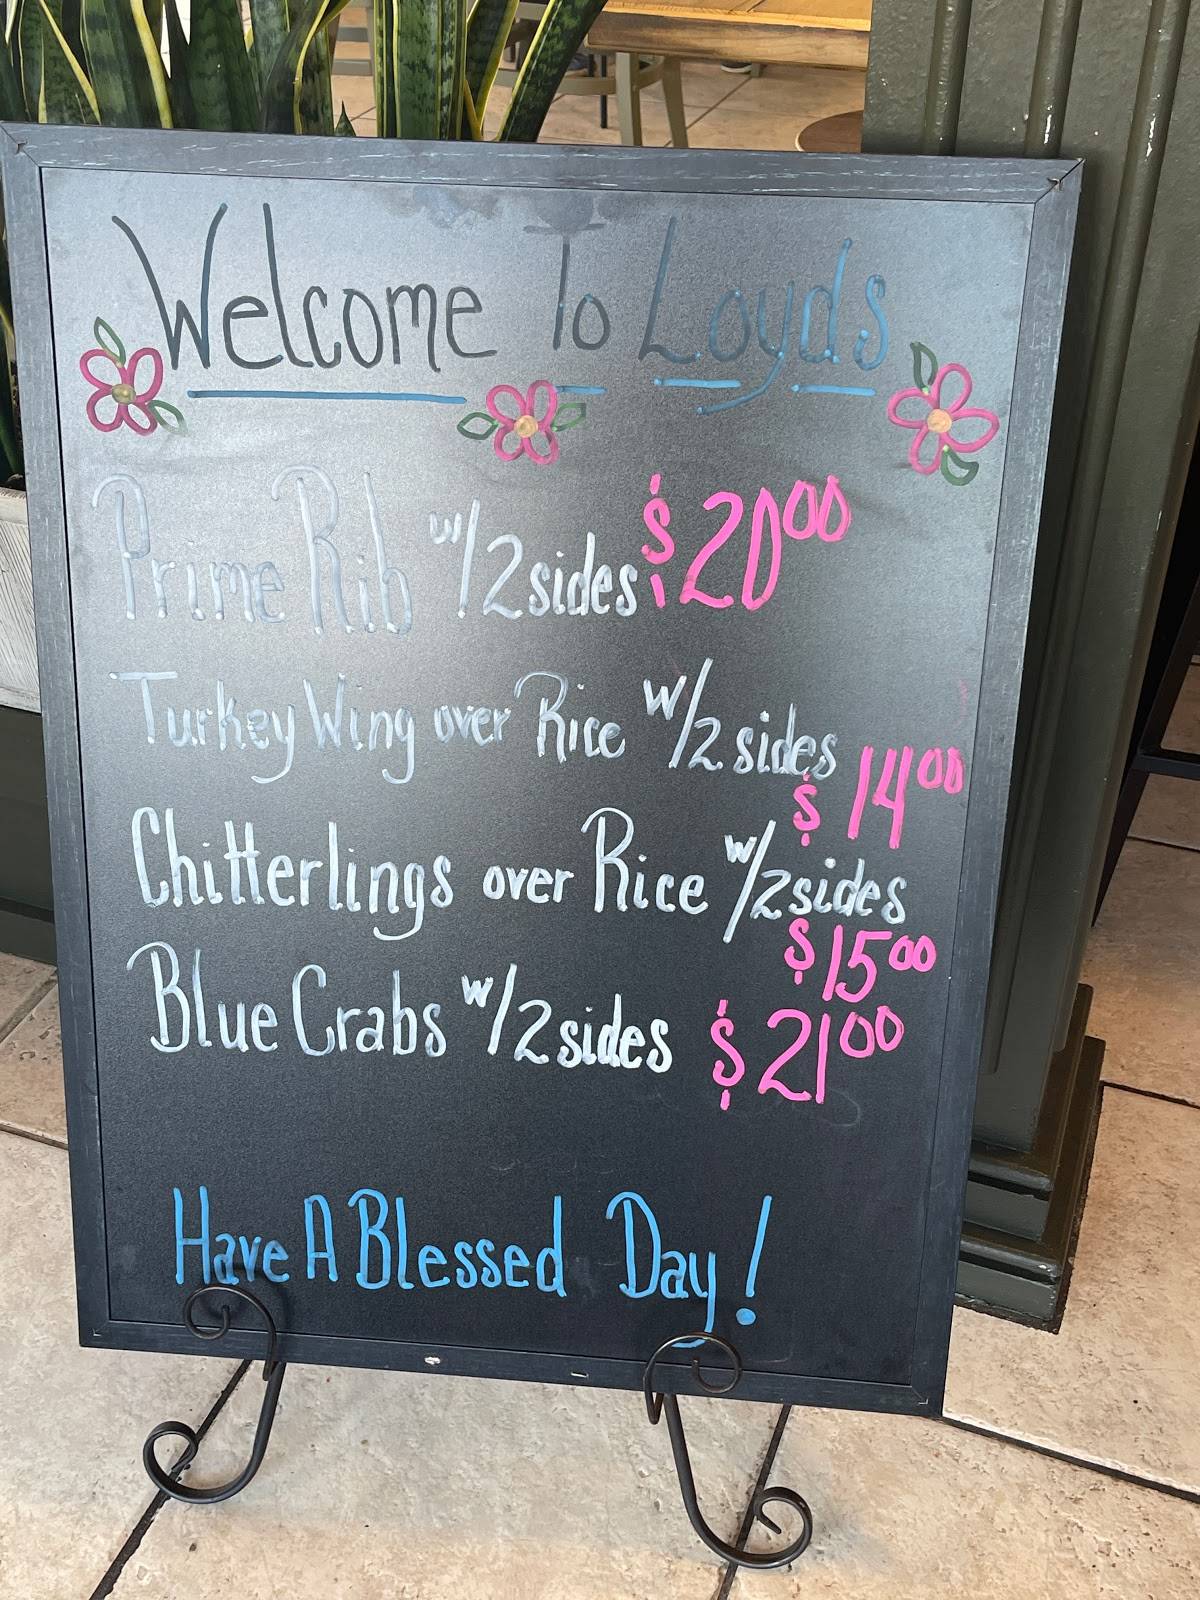 Welcome To Loyds
Prime Rib w/2 sides $20.00
Turkey Wing over Rice w/2 sides
$14.00
Chitterlings over Rice w/2 sides
$15.00
Blue Crabs w/2 sides $21.00
Have A Blessed Day!